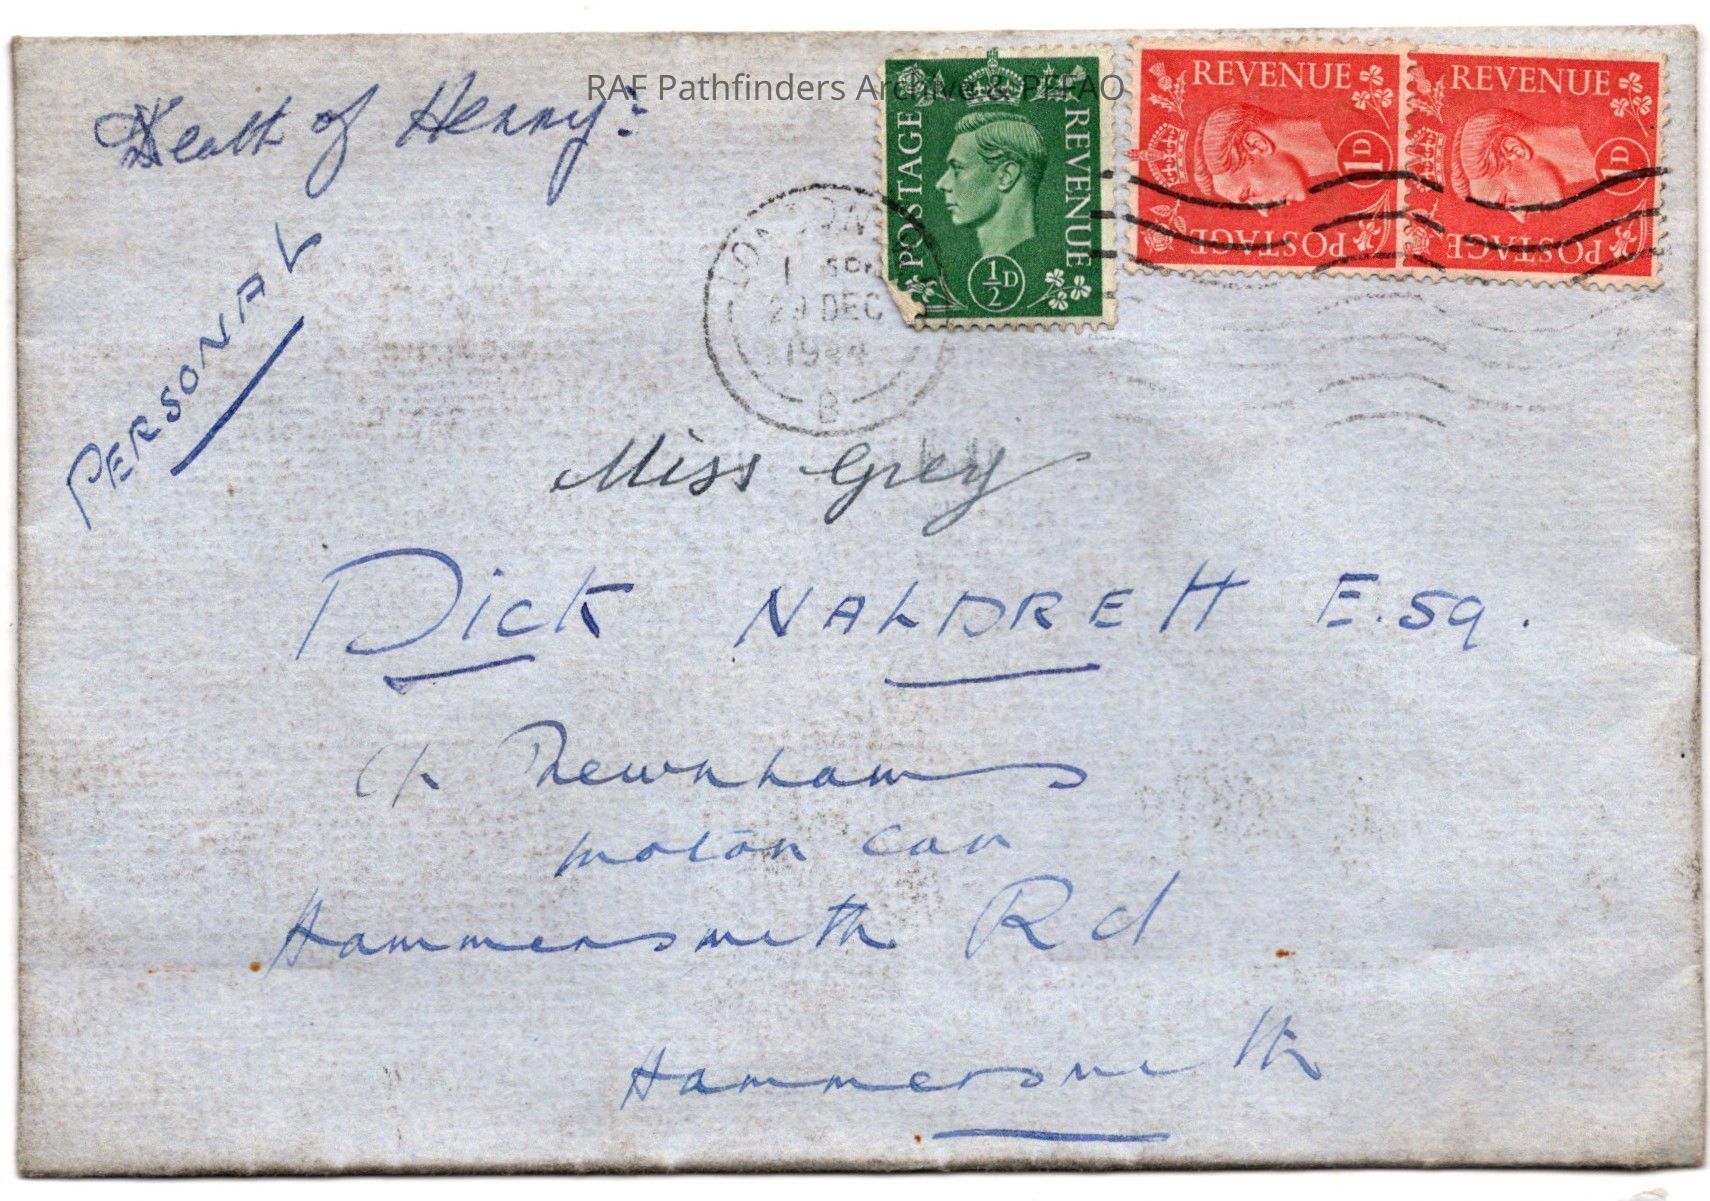 RAF Pathfinders Archive & PFFAO
Death of Henry:
PERSONAL
POSTAGE
REVENUE
½D
REVENUE
1D
POSTAGE
REVENUE
1D
POSTAGE
LONDON
29 DEC
1944
B
Miss Grey
DICK NALDRETT E.Sq.
Newnhams
motor car
Hammersmith Rd
Hammersmith